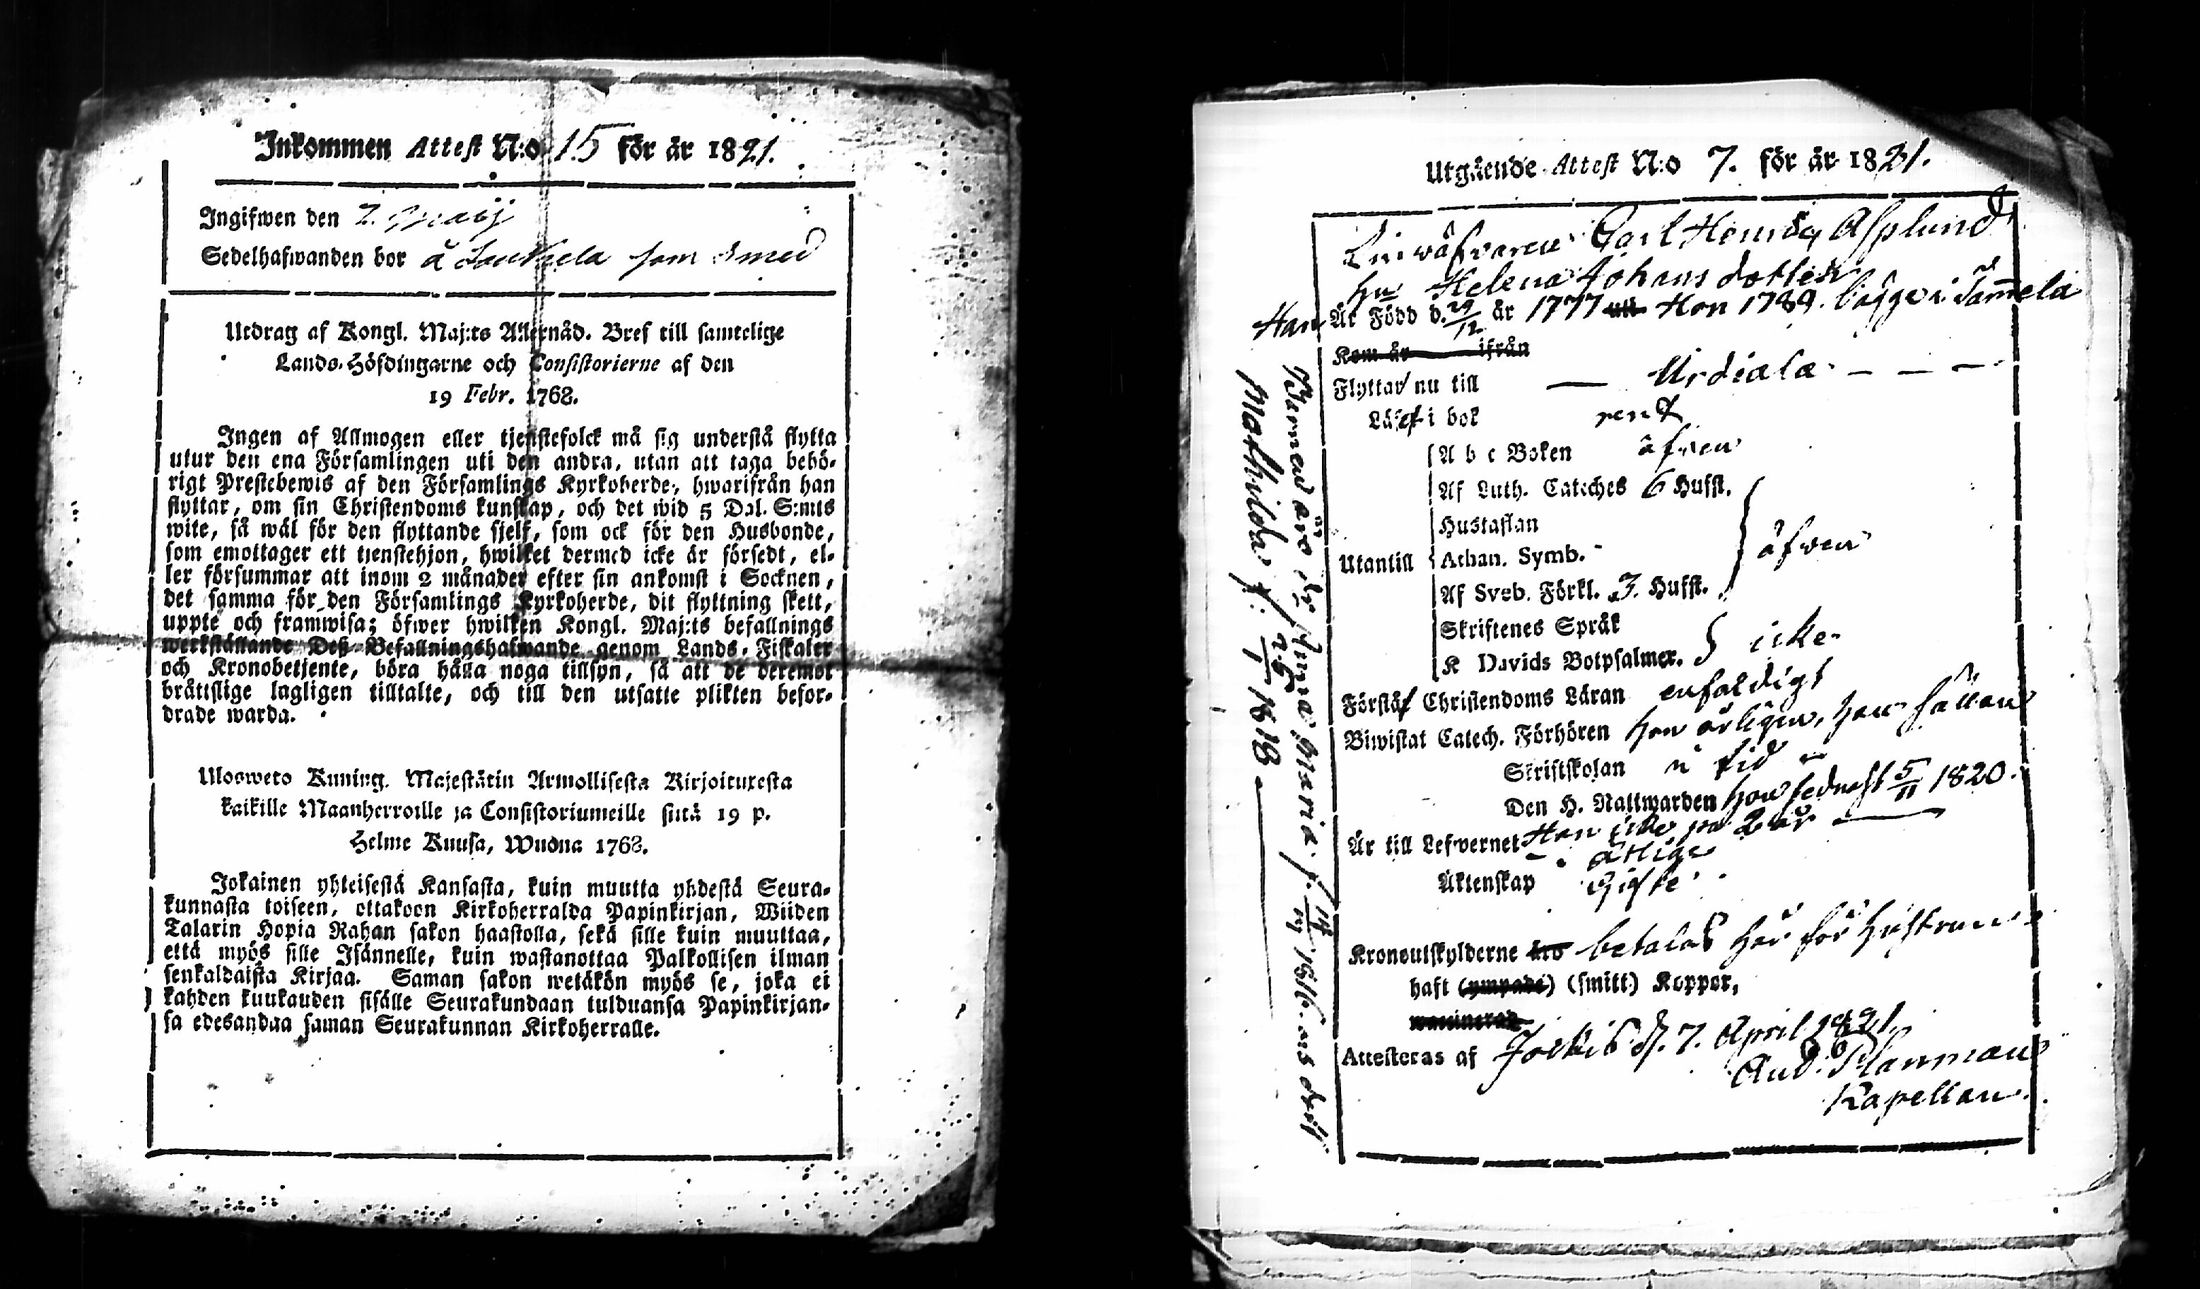 Inkommen Attest N:o 15 för år 1821.
Ingifwen den 7. Maij
Sedelhafwanden bor å som smed
Utdrag af Kongl. Maj:ts Allernåd. Bref till samtelige
Lands-Höfdingarne och Consistorierne af den
19 Febr. 1768.
Ingen af Allmogen eller tjenstefolck må sig understå flytta
utur den ena Församlingen uti den andra, utan att taga behö-
rigt Prestebewis af den Församlings Kyrkoherde, hwarifrån han
flyttar, om sin Christendoms kunskap, och det wid 5 Dal. S:mts
wite, så wäl för den flyttande sjelf, som ock för den Husbonde,
som emottager ett tjenstehjon, hwilket dermed icke är försedt, el-
ler försummar att inom 2 månader efter sin ankomst i Socknen,
det samma för den Församlings Kyrkoherde, dit flyttning skett,
uppte och framwisa; öfwer hwilken Kongl. Maj:ts befallnings
werkställande Deß Befallningshafwande genom Lands-Fiskaler
och Kronobetjente, böra hålla noga tillsyn, så att de deremot
bråttslige lagligen tilltalte, och till den utsatte plikten befor-
drade warda.
Ulosweto Kuning. Majestätin Armollisesta Kirjoituxesta
kaikille Maanherroille ja Consistoriumeille siitä 19 p.
Helme Kuusa, Wuona 1768.
Jokainen yhteisestä Kansasta, kuin muutta yhdestä Seura-
kunnasta toiseen, ottakoon Kirkoherralda Papinkirjan, Wiiden
Talarin Hopia Rahan sakon haastolla, sekä sille kuin muuttaa,
että myös sille Isännelle, kuin wastanottaa Palkollisen ilman
senkaldaista Kirjaa. Saman sakon wetäkön myös se, joka ei
kahden kuukauden sisälle Seurakundaan tulduansa Papinkirjan-
sa edesandaa saman Seurakunnan Kirkoherralle.
Utgående Attest N:o 7. för år 1821.
Linwäfvaren Carl Henric Asplund
Hu Helena Johans dotter
Han Är Född d. 29/12 år 1777 Hon 1789. bägge i Tammela
Kom år ifrån
Flyttar nu till — Urdiala - - -
Läser i bok rent
A b c Boken äfven
Af Luth. Cateches 6 Hufst.
Hustaflan
Utantill Athan. Symb. äfven
Af Sveb. Förkl. 3. Hufst.
Skriftenes Språk
K Davids Botpsalmer. icke
Förstår Christendoms Läran enfaldigt
Biwistat Catech. Förhören Hon årligen, han sällan
Skriftskolan i tid
Den H. Nattwarden Hon sednast 5/11 1820.
Är till Lefwernet Han icke på 2 år
ärlige
Äktenskap Gifte
Kronoutskylderne äro betalas här för Hustrun
haft (ympade) (smitt.) Koppor,
waccinerad
Attesteras af Jockis d. 7. April 1821
And. Planman
Kapellan.
Barnen äro dr Anna Maria f. 1816. och dott
Mathilda f. 25/1 1818